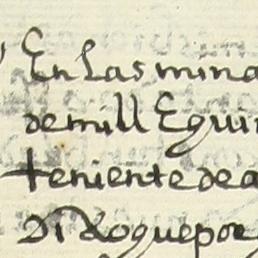 En las mina
de mill E quin
teniente de a
Di Roque por